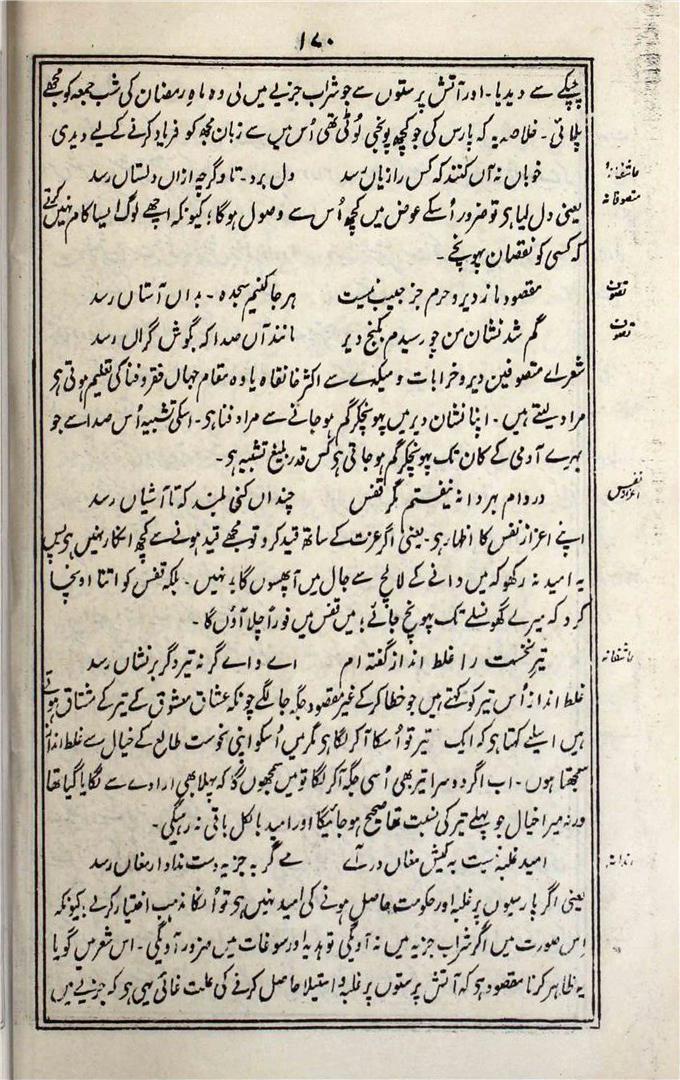 ۱۷۰
چپکے سے دیدیا۔ اور آتش پرستوں سے جو شراب جزیے میں لی وہ ماہِ رمضان کی شب جمعہ کو مجھے
پلائی۔ خلاصہ یہ کہ پارس کی جو کچھ پونجی لُوٹی تھی اُس میں سے زبان مجھ کو فریاد کرنے کے لیے دیدی
عاشقانہ و متصوفانہ
خوباں نہ آں کنند کہ کس را زیاں رسد دل برد۔ تا دگرچہ ازاں دلستاں رسد
یعنی دل لیا ہی تو ضرور اُسکے عوض میں کچھ اُس سے وصول ہوگا؛ کیونکہ اچھے لوگ ایسا کام نہیں کرتے
کہ کسی کو نقصان پہونچے۔
تصوف
مقصود ما ز دیر و حرم جز حبیب نیست ہر جا کنیم سجدہ۔ بداں آستاں رسد
تصوف
گم شد نشان من چو رسیدم بکنج دیر مانند آں صدا کہ بگوش گراں رسد
شعراے متصوفین دیر و خرابات و میکدے سے اکثر خانقاہ یا وہ مقام جہاں فقر و فنا کی تعلیم ہوتی ہی
مراد لیتے ہیں۔ اپنا نشان دیر میں پہونچکر گم ہو جانے سے مراد فنا ہی۔ اسکی تشبیہ اُس صدا سے جو
بہرے آدمی کے کان تک پہونچکر گم ہو جاتی ہی کس قدر بلیغ تشبیہ ہو۔
اعزاز نفس
در دام بہر دانہ نیفتم مگر قفس چنداں کنی بلند کہ تا آشیاں رسد
اپنے اعزاز نفس کا اظہار ہی۔ یعنی اگر عزت کے ساتھ قید کرو تو مجھے قید ہونے سے کچھ انکار نہیں ہی پس
یہ امید نہ رکھو کہ میں دانے کے لالچ سے جال میں آ پھسوں گا؛ نہیں۔ بلکہ قفس کو اتنا اونچا
کردو کہ میرے گھونسلے تک پہونچ جائے؛ میں قفس میں فوراً چلا آؤں گا۔
عاشقانہ
تیر نخست را غلط انداز گفتہ ام اے واے گر نہ تیر دگر بر نشاں رسد
غلط انداز اُس تیر کو کہتے ہیں جو خطا کر کے غیر مقصود جگہ جا لگے چونکہ عشاق معشوق کے تیر کے مشتاق ہوتے
ہیں اسلیے کہتا ہی کہ ایک تیر تو اُسکا آکر لگا ہی مگر میں اُسکو اپنی نحوست طالع کے خیال سے غلط انداز
سمجھتا ہوں۔ اب اگر دوسرا تیر بھی اُسی جگہ آکر لگا تو میں سمجھوں گا کہ پہلا بھی ارادے سے لگایا گیا تھا
ورنہ میرا خیال جو پہلے تیر کی نسبت تھا صحیح ہو جائیگا اور امید بالکل باقی نہ رہیگی۔
رندانہ
امید غلبہ نیست بہ کیش مغاں در آے مے گر بہ جزیہ دست نداد ارمغاں رسد
یعنی اگر پارسیوں پر غلبہ اور حکومت حاصل ہونے کی امید نہیں ہی تو اُنکا مذہب اختیار کرلے؛ کیونکہ
اِس صورت میں اگر شراب جزیہ میں نہ آویگی تو ہدیہ اور سوغات میں ضرور آویگی۔ اس شعر میں گویا
یہ ظاہر کرنا مقصود ہی کہ آتش پرستوں پر غلبہ و استیلا حاصل کرنے کی علت غائی یہی ہی کہ جزیے میں